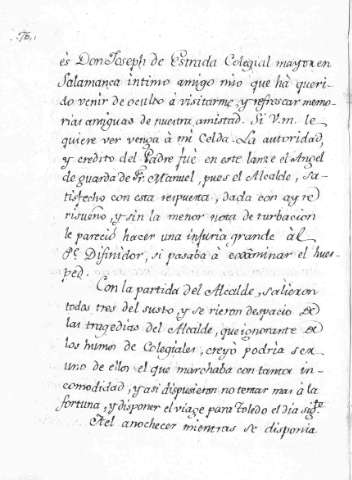 76.
es Don Joseph de Estrada Colegial mayor en
Salamanca intimo amigo mio que há queri-
do venir de oculto á visitarme, y refrescar memo-
rias amiguas de nuestra amistad. Si V.m. le
quiere ver venga à mi Celda. La autoridad,
y credito del Padre fué en este lanze el Angel
de guarda de Fr. Manuel, pues el Alcalde, sa-
tisfecho con esta respuesta, dada con ayre
risueño, y sin la menor nota de turbacion
le pareció hacer una injuria grande àl
Pe. Difinidor, si pasaba à examinar el hues-
ped.
Con la partida del Alcalde, salieron
todos tres del susto, y se rieron despacio de
las tragedias del Alcalde, que ignorante de
los humos de Colegiales, creyó podria ser
uno de ellos el que marchaba con tanta in-
comodidad, y asi dispusieron no tentar mas à la
fortuna, y disponer el viage para Toledo el dia sigte.
Al anochecer mientras se disponia